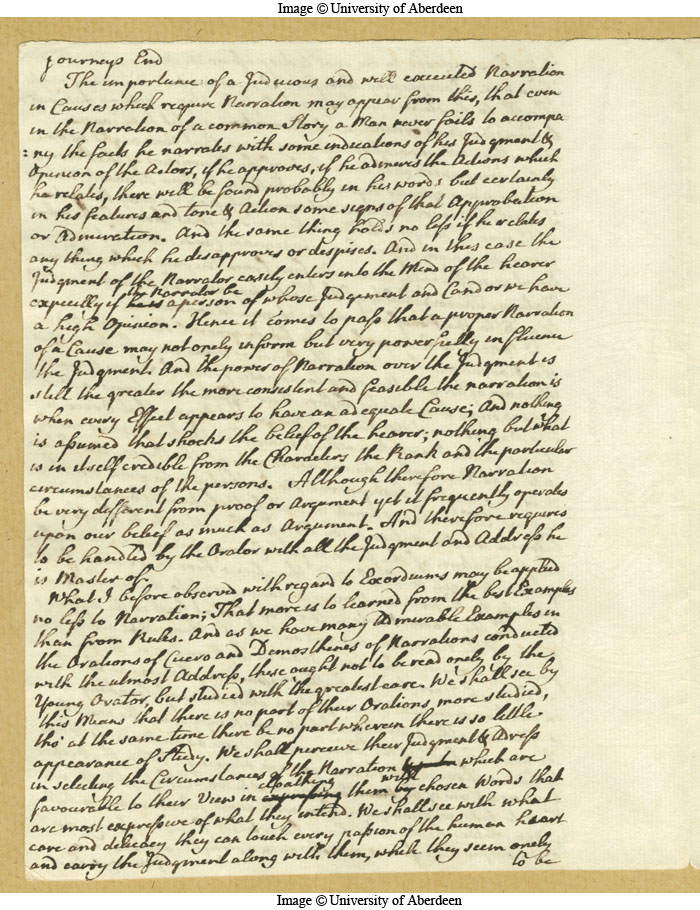 Image © University of Aberdeen
journeys End
The importance of a Judicious and well executed Narration
in Causes which require Narration may appear from this, that even
in the Narration of a common Story a Man never fails to accompa
:ny the facts he narrates with some indications of his Judgment &
Opinion of the Actors, if he approves, if he admires the Actions which
he relates, there will be found probably in his words but certainly
in his features and tone & Action some signs of that Approbation
or Admiration. And the same thing holds no less if he relates
any thing which he disapproves or despises. And in this case the
Judgment of the Narrator easily enters into the Mind of the hearer
the Narrator be
especially if he is a person of whose Judgement and Candor we have
a high Opinion. Hence it comes to pass that a proper Narration
of a Cause may not onely inform but very powerfully influence
the Judgment. And the power of Narration over the Judgment is
still the greater the more consistent and feasible the narration is
when every Effect appears to have an adequate Cause; And nothing
is assumed that shocks the belief of the hearer; nothing but what
is in itself credible from the Charecters the Rank and the particular
circumstances of the persons. Although therefore Narration
be very different from proof or Argument yet it frequently operates
upon our belief as much as Argument. And therefore requires
to be handled by the Orator with all the Judgment and Address he
is Master of.
What I before observed with regard to Exordiums may be applied
no less to Narration; That more is to learned from the best Examples
than from Rules. And as we have many Admirable Examples in
the Orations of Cicero and Demosthenes of Narrations conducted
with the utmost Address, these ought not to be read onely by the
Young Orator, but studied with the greatest care. We shall see by
this Means that there is no part of their Orations, more studied,
tho' at the same time there be no part wherein there is so little
appearance of Study. We shall perceive their Judgment & Adress
in selecting the Circumstances of the Narration which are
cloathing with
favourable to their View in expressing them by chosen Words that
are most expressive of what they intend. We shall see with what
care and delicacy they can touch every passion of the human heart
and carry the Judgment along with them, while they seem onely
to be
Image © University of Aberdeen